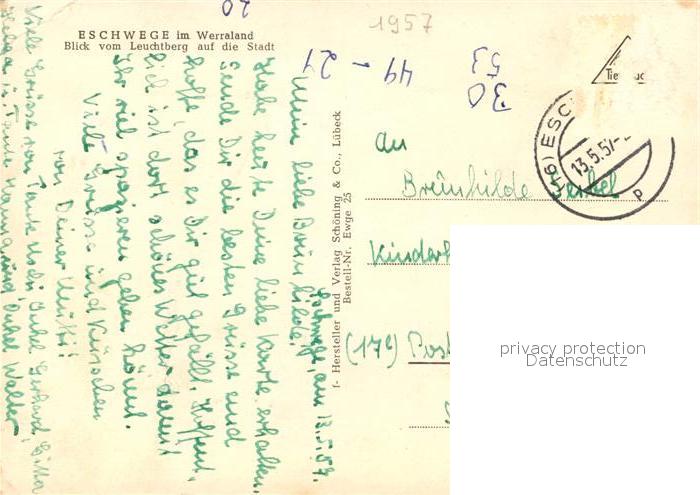 20
1957
ESCHWEGE im Werraland
Blick vom Leuchtberg auf die Stadt
49 - 21
53
30
(16) ESC
13.5.57-
p
Eschwege, am 13.5.57.
Mein liebe Brünhilde!
Habe heute Deine liebe Karte erhalten.
Sende Dir die besten Grüsse und
hoffe, das es Dir gut gefällt. Hoffent-
lich ist dort schönes Wetter damit
Ihr viel spazieren gehen könnt.
Viele Grüsse und Küsschen
von Deiner Mutti!
Viele Grüsse von Tante Uschi, Onkel Gerhard, Gitta
Helga u. Tante Hanna und Onkel Walter
f- Hersteller und Verlag Schöning & Co., Lübeck
Bestell-Nr. Ewge 25
an
Brünhilde
Kinderh
(17c) Post
privacy protection
Datenschutz